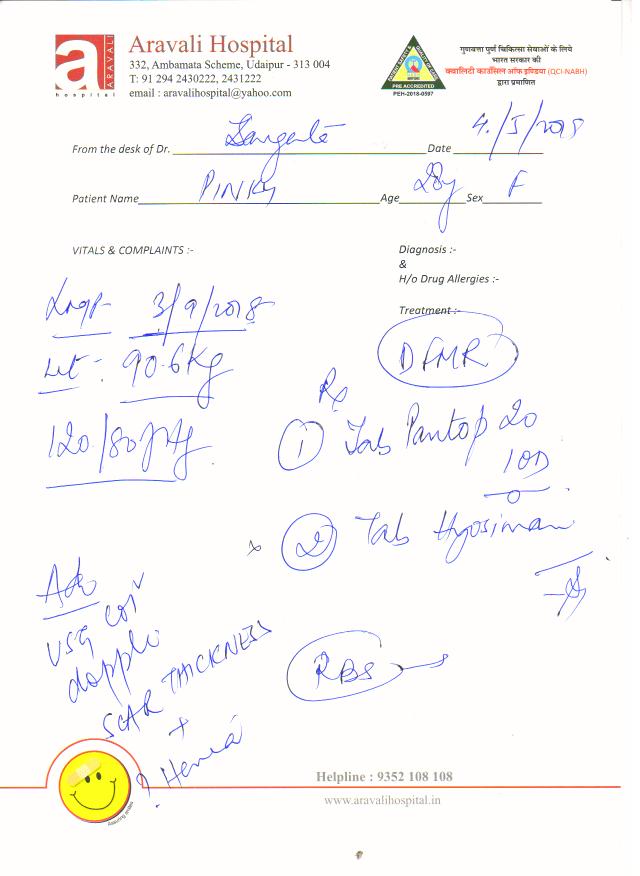 a
ARAVALI
hospital
Aravali Hospital
332, Ambamata Scheme, Udaipur - 313 004
T: 91 294 2430222, 2431222
email : aravalihospital@yahoo.com
PRE ACCREDITED
PEH-2018-0597
गुणवत्ता पुर्ण चिकित्सा सेवाओं के लिये
भारत सरकार की
क्वालिटी काउंसिल ऑफ इण्डिया (QCI-NABH)
द्वारा प्रमाणित
From the desk of Dr. Date 4/5/2018
Patient Name PINKY Age 28y Sex F
VITALS & COMPLAINTS :-
Diagnosis :-
&
H/o Drug Allergies :-
Treatment :-
LMP- 3/9/2018
Wt - 90.6Kg
120/80
DFMR
Rx
① Tab Pantop 20
1OD
② Tab Hyosiman
Adv
USG
dopple
SCAR THICKNESS
+
? Hernia
RBS
Assuring smiles
Helpline : 9352 108 108
www.aravalihospital.in